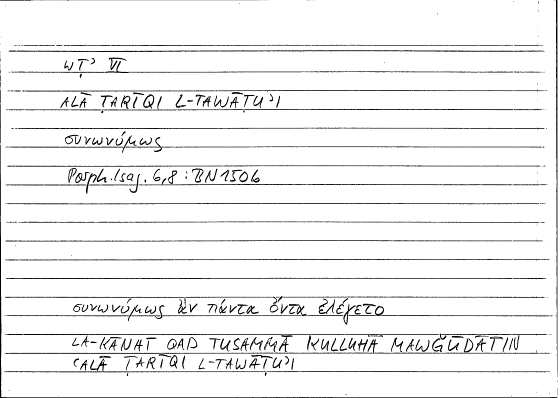 WṬʾ VI
ALĀ ṬARĪQI L-TAWĀṬUʾI
συνωνύμως
Porph. Isag. 6,8 : BN 150b
συνωνύμως ἂν πάντα ὄντα ἐλέγετο
LA-KĀNAT QAD TUSAMMĀ KULLUHĀ MAWǦŪDĀTIN
ʿALĀ ṬARĪQI L-TAWĀṬUʾI